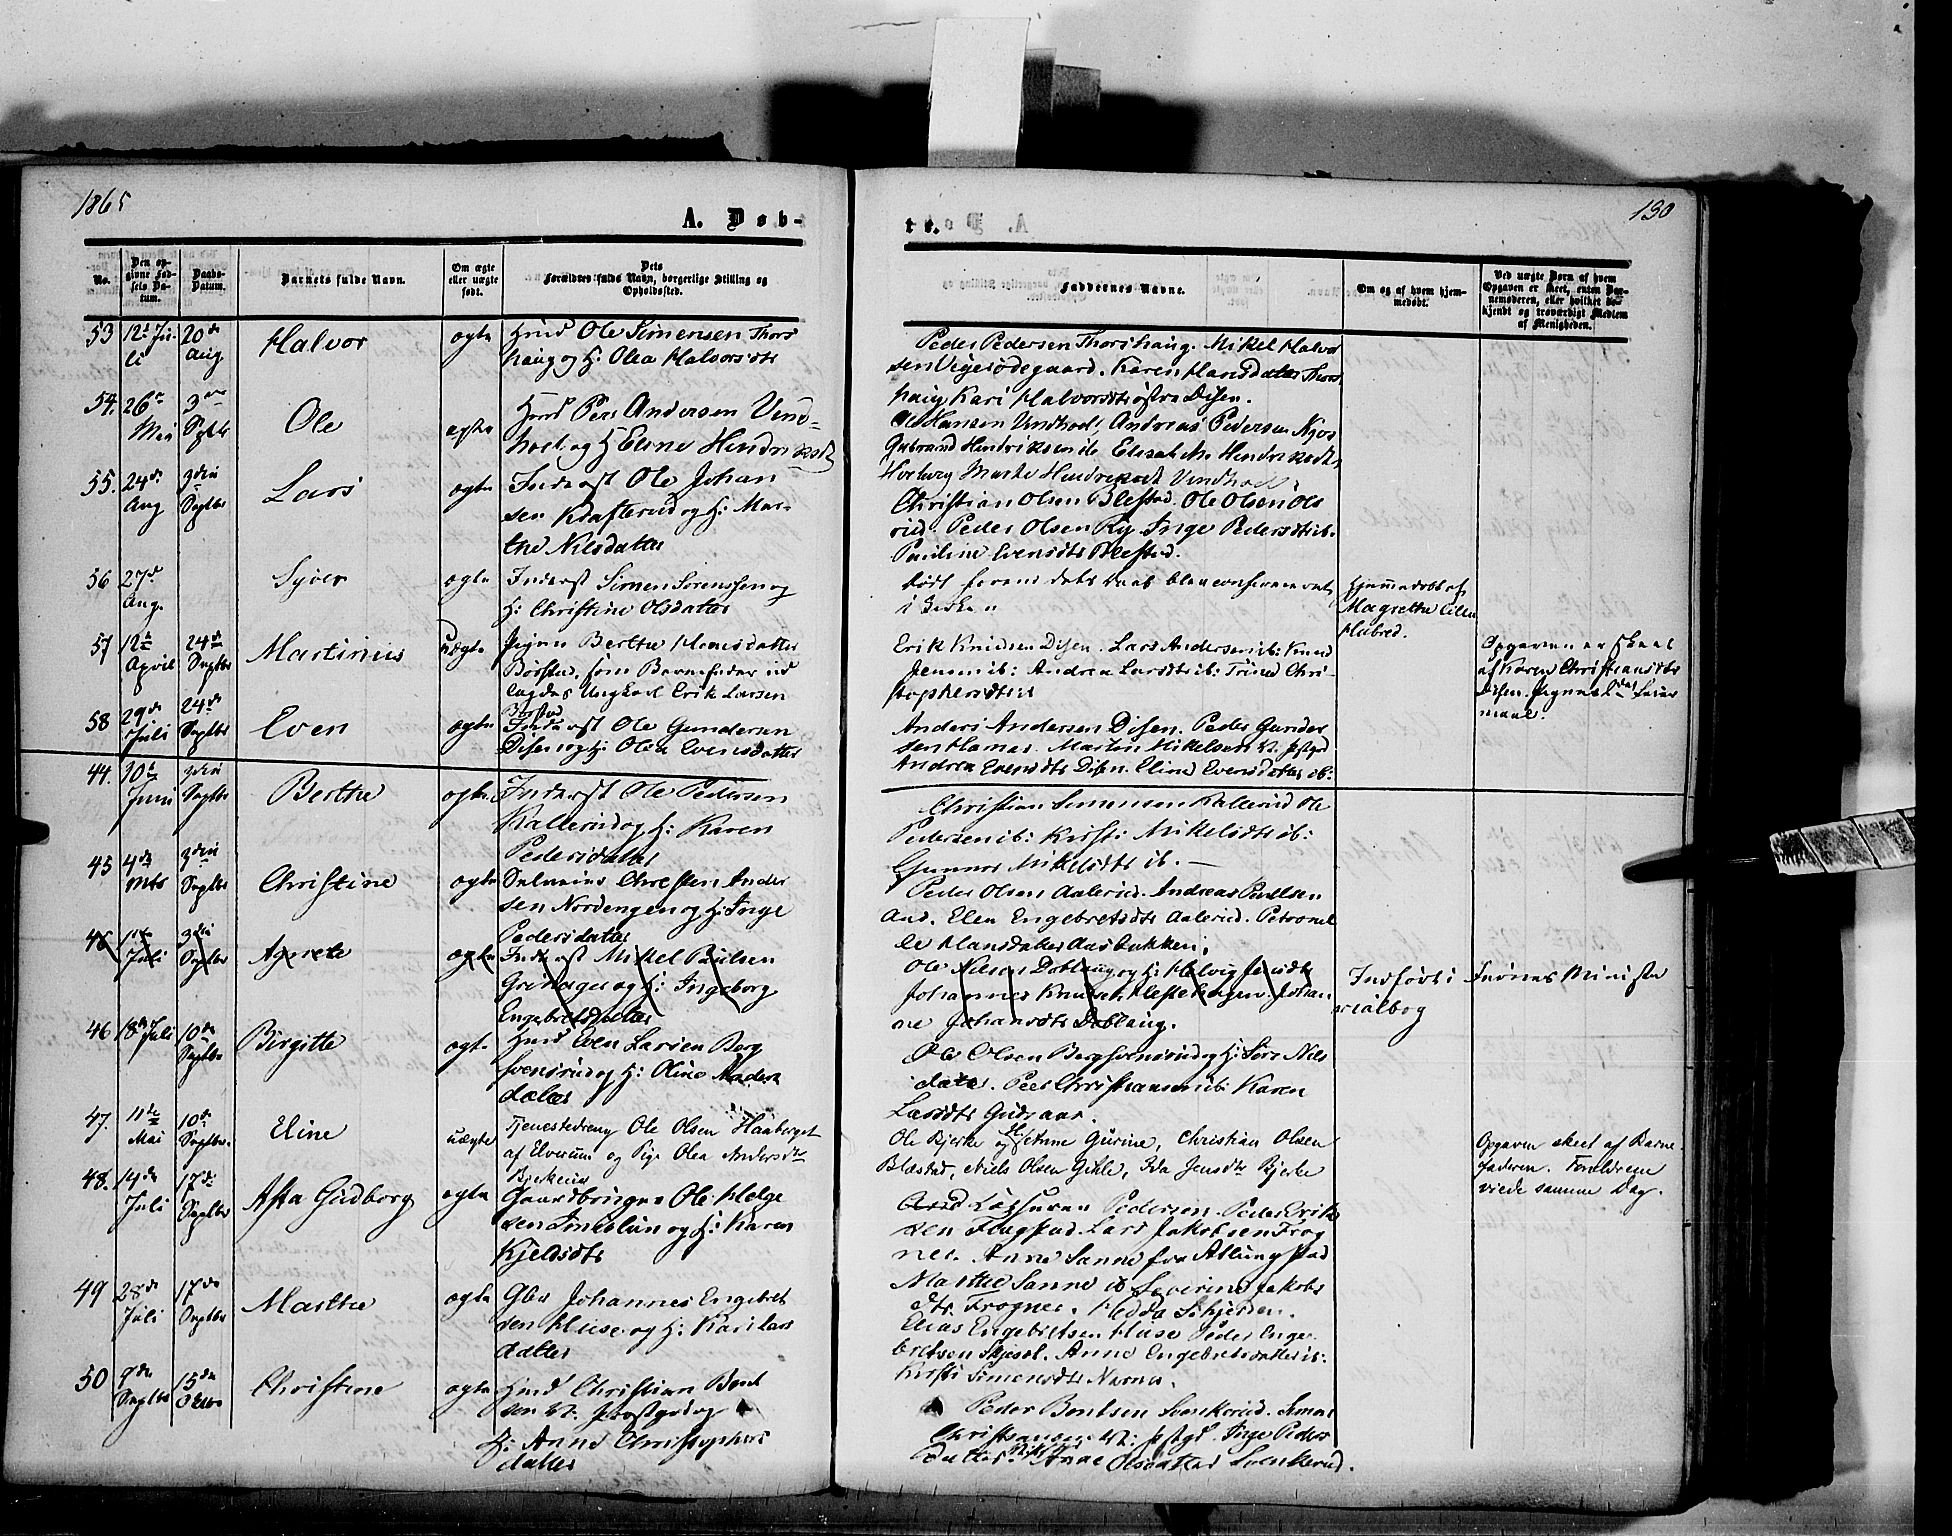 1865
A. Døb-
te.
130
No.
Den op-
givne Fød-
sels Da-
tum.
Daabs-
Datum.
Barnets fulde Navn.
Om ægte
eller uægte
født.
Dets
Forældres fulde Navn, borgerlige Stilling og
Opholdssted.
Faddernes Navne.
Om og af hvem hjem-
medøbt.
Ved uægte Børn af hvem
Opgaven er skeet, enten Bar-
nemoderen, eller hvilket be-
kjendt og troværdigt Medlem
af Menigheden.
53 12te Ju-
li
20de
Aug.
Halvor
ægte
Hmd Ole Simensen Thors
haug og H: Olea Halvorsdtr
Peder Pedersen Thorshaug. Mikel Halvor
sen Vegesødegaard. Karen Hansdatter Thors
haug Kari Halvorsdtr østre Disen.
54. 26de
Mai
3die
Septbr
Ole
ægte
Hmd Per Andersen Vind-
hoel og H Eline Hendriksdt
Ole Hansen Vindhoel, Andreas Pedersen Kjos
Gulbrand Hendriksen ib. Elisabeth Hendriksdtr
Horberg Marthe Hendriksdt Vindhoel
55. 24de
Aug
3die
Septbr
Lars
ægte
Inderst Ole Johan
sen Krafterud og H: Mar-
the Nilsdatter
Christian Olsen Blestad. Ole Olsen Ols
rud. Peder Olsen Ry Inge Pedersdtr ib.
Pauline Evensdtr Blestad.
56 27de
Aug.
Syver
ægte
Inderst Simen Sørensen og
H: Christine Olsdatter
Død førend dets Daab blev confirmeret
i Kirken
Hjemmedøbt af
Magrethe Eline
Habred.
57 12te
April
24de
Septbr
Martinius
uægte
Pigen Berthe Hansdatter
Børstad, som Barnefader ud
lagdes Ungkarl Erik Larsen
Børstad
Erik Knudsen Disen. Lars Andersen ib: Knud
Jensen ib: Andrea Larsdtr ib: Trine Chri-
stophersdtr ib
Opgaven er skeet
af Karen Christiansdtr
Disen. Pigens 1ste Leier
maal.
58 29de
Juli
24de
Septbr
Even
ægte
Inderst Ole Gundersen
Disen og H: Olea Evensdatter
Anders Andersen Disen. Peder Gunder
sen Hamar. Martin Mikelsen V. Præstgd
Andrea Evensdtr Disen. Eline Evensdatter ib:
44. 10de
Juni
3die
Septbr
Berthe
ægte
Inderst Ole Pedersen
Kallerud og H: Karen
Pedersdatter
Christian Simensen Kallerud Ole
Pedersen ib: Kirsti Mikelsdtr ib:
Gunnor Mikelsdtr ib. —
45 4de
Mts
3die
Septbr
Christine
ægte
Selveier Christen Ander
sen Nordengen og H: Inge
Pedersdatter
Peder Olsen Aalerud. Andreas Paulsen
Aas. Elen Engebretsdtr Aalerud. Petronel
le Hansdatter Aasbakken.
46
Juli
3die
Septbr
Agnete
ægte
Inderst Mikel Paulsen
Grinager og H: Ingeborg
Engebretsdatter
Ole Nilsen Doblaug og H: Helvig Jensdtr
Johannes Knudsen Hestehagen. Johan
ne Johansdtr Doblaug.
Indført i Furnes Ministe
rialbog
46 18de Juli
10de
Septbr
Birgitte
ægte
Hmd Even Larsen Berg
Svensrud og H: Oline Anders
datter
Ole Olsen Berg Svensrud og H: Siri Nils
datter. Peder Christiansen ib: Karen
Larsdtr Gudsaas.
47. 11te
Mai
10de
Septbr.
Eline
uægte
Tjenestedreng Ole Olsen Haaberget
af Elverum og Pige Olea Andersdtr
Bjerkerud
Ole Bjerke og H: Anne Gurine, Christian Olsen
Blæstad, Niels Olsen Gihle, Ida Jensdtr Bjerke
Opgaven skeet af Barne-
faderen. Forældrene
viede samme Dag.
48. 14de
Juli
17de
Septbr
Asta Gudborg
ægte
Gaardbruger Ole Helge
sen Imeslun og H: Karen
Kjeldsdtr
Pedersen. Peder Erik
sen Flagstad. Lars Jakobsen Frog
ner. Anne Sanne fra Atlungstad
Marthe Sanne & Severine Jakobs
dtr Frogner. Hedda Schjerden.
49 28de
Juli
17de
Septbr
Marthe
ægte
Gbr Johannes Engebret
sen Huse og H: Kari Lars
datter
Elias Engebretsen Huse Peder Enge-
bretsen Skjesel. Anne Engebretsdatter ib:
Kirsti Simensdtr Narna.
50 9de
Septbr
15de
Octbr
Christine
ægte
Hmd Christian Bent
sen V. Præstgrd og
H: Anne Christophers
datter
Peder Bentsen Svenkerud. Simen
Christiansen V: Pstgd. Inge Peders
datter Anne Olsdatter Svenkerud.